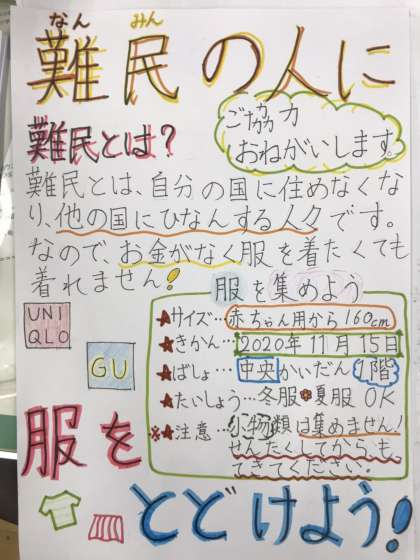 なん みん
難民の人に
ご協力
おねがいします
難民とは?
難民とは、自分の国に住めなくな
り、他の国にひなんする人々です。
なので、お金がなく服を着たくても
着れません!
服を集めよう
UNI
QLO
GU
★サイズ…赤ちゃん用から160cm
★きかん…2020年11月15日
★ばしょ…中央かいだん1階
★たいしょう…冬服夏服OK
※★注意…小物類は集めません!
せんたくしてからも
てきてください。
服を
とどけよう!